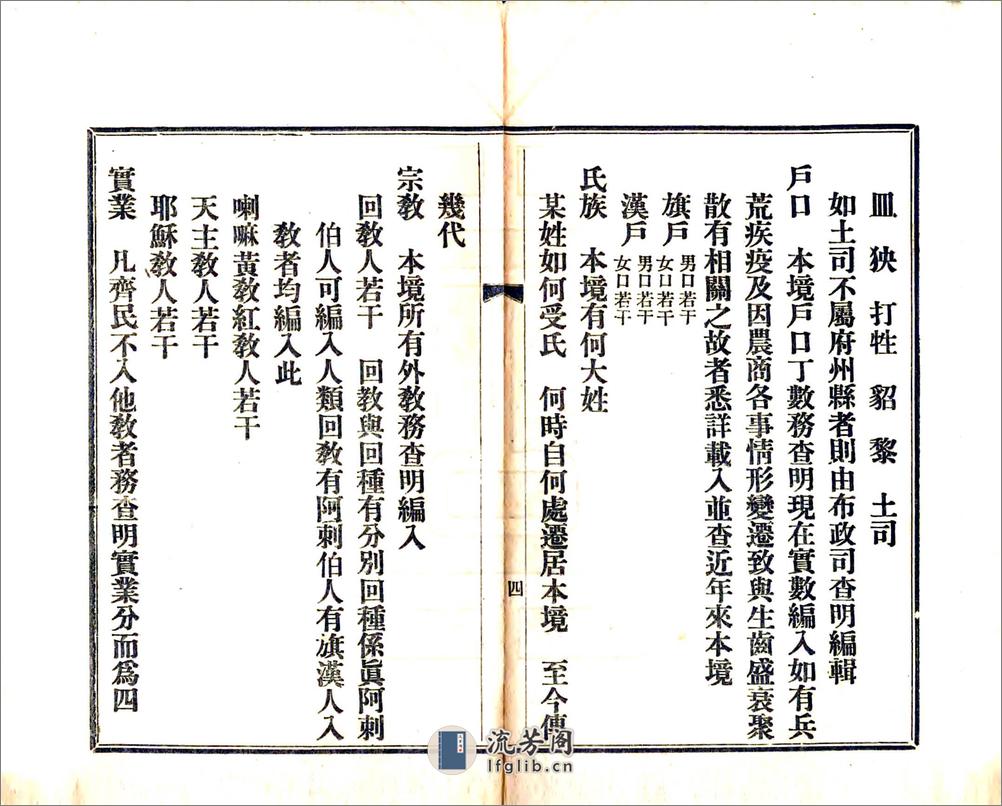 皿　狹　打牲　貂　黎　土司
如土司不屬府州縣者則由布政司查明編輯
戶口　本境戶口丁數務查明現在實數編入如有兵
荒疾疫及因農商各事情形變遷致與生齒盛衰聚
散有相關之故者悉詳載入並查近年來本境
旗戶　男口若干
女口若干
漢戶　男口若干
女口若干
氏族　本境有何大姓
某姓如何受氏　何時自何處遷居本境　至今傳
四
幾代
宗教　本境所有外教務查明編入
回教人若干　回教與回種有分別回種係眞阿剌
伯人可編入人類回教有阿剌伯人有旗漢人入
教者均編入此
喇嘛黃教紅教人若干
天主教人若干
耶穌教人若干
實業　凡齊民不入他教者務查明實業分而爲四
流芳阁
lfglib.cn